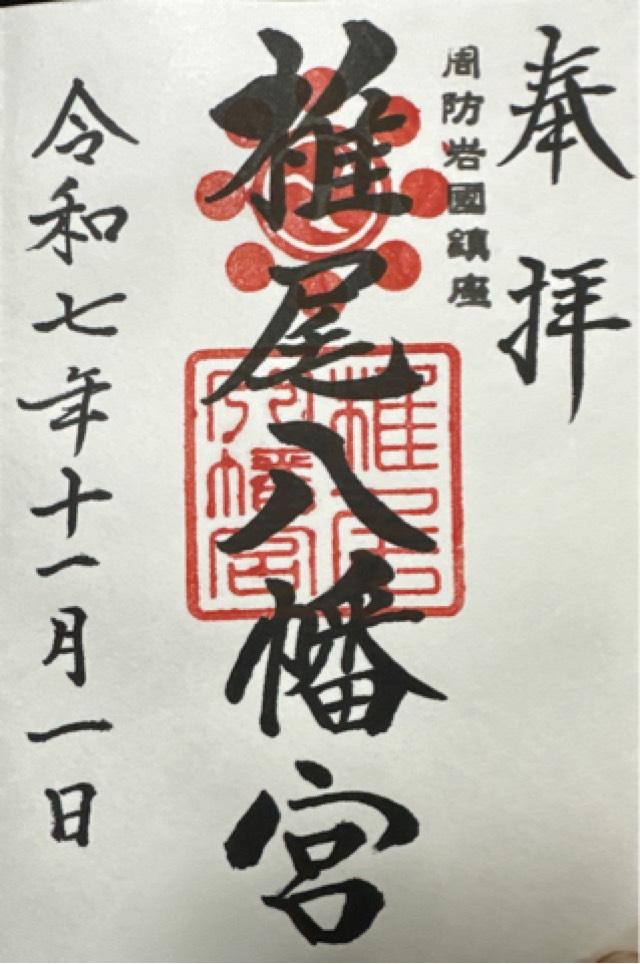 奉拝
周防岩國鎮座
椎尾八幡宮
椎尾八幡宮
令和七年十一月一日